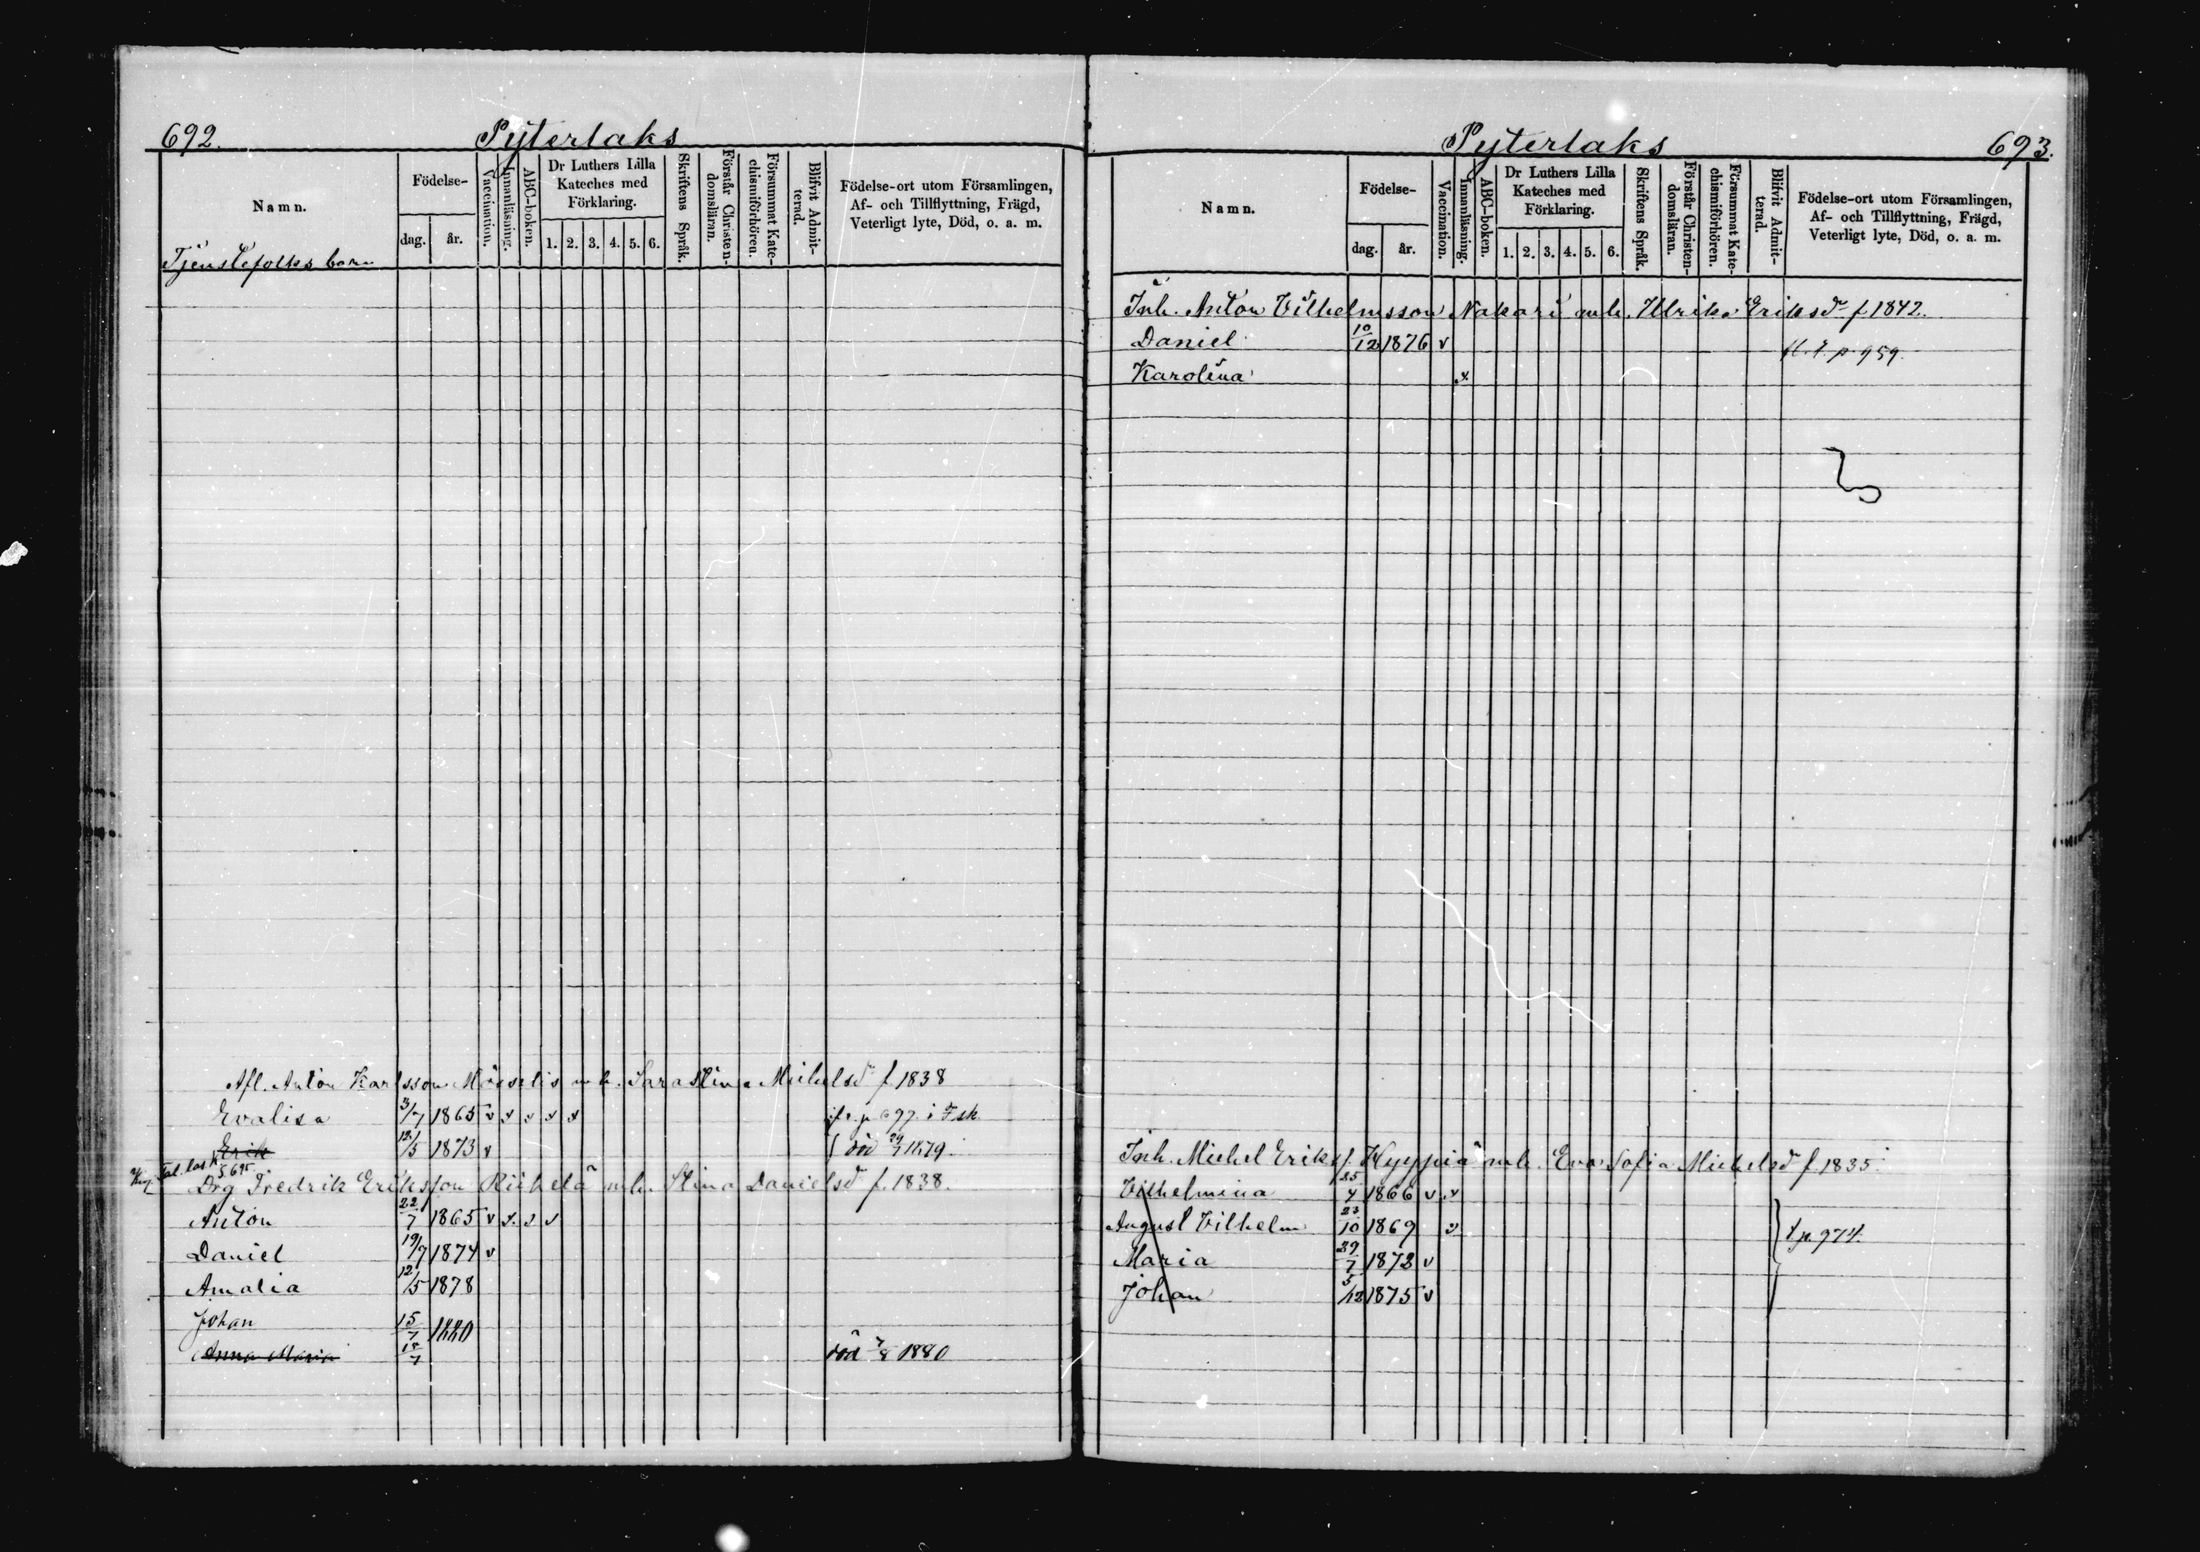 692. Pyterlaks
Namn.
Födelse-
dag. år.
Vaccination.
Innanläsning.
ABC-boken.
Dr Luthers Lilla Kateches med Förklaring.
1. 2. 3. 4. 5. 6.
Skriftens Språk.
Förstår Christendomsläran.
Försummat Katechismiförhören.
Blifvit Admitterad.
Födelse-ort utom Församlingen,
Af- och Tillflyttning, Frägd,
Veterligt lyte, Död, o. a. m.
Tjenstefolks barn
Afl. Anton Karlsson m h. Sarastina Michelsdr f. 1838
Evalisa 3/7 1865 v v v v v
Erik 12/5 1873 v död 1879.
Drg Fredrik Eriksson mh. Stina Danielsd f. 1838.
Anton 22/7 1865 v v v v
Daniel 19/7 1874 v
Amalia 12/5 1878
Johan 15/7 1880
Anna Maria 15/7 död 7/8 1880
Pyterlaks 693.
Namn.
Födelse-
dag. år.
Vaccination.
Innanläsning.
ABC-boken.
Dr Luthers Lilla Kateches med Förklaring.
1. 2. 3. 4. 5. 6.
Skriftens Språk.
Förstår Christendomsläran.
Försummat Katechismiförhören.
Blifvit Admitterad.
Födelse-ort utom Församlingen,
Af- och Tillflyttning, Frägd,
Veterligt lyte, Död, o. a. m.
Inh. Anton Vilhelmsson Nakari mh. Ulrika Eriksdr f 1842.
Daniel 10/12 1876 v p. 959.
Karolina v
Inh. Michel Eriks. Kyyniä mh. Eva Sofia Michelsd f. 1835
Vilhelmina 25/4 1866 v v
August Vilhelm 23/10 1869 v
t p. 974.
Maria 29/7 1872 v
Johan 5/12 1875 v